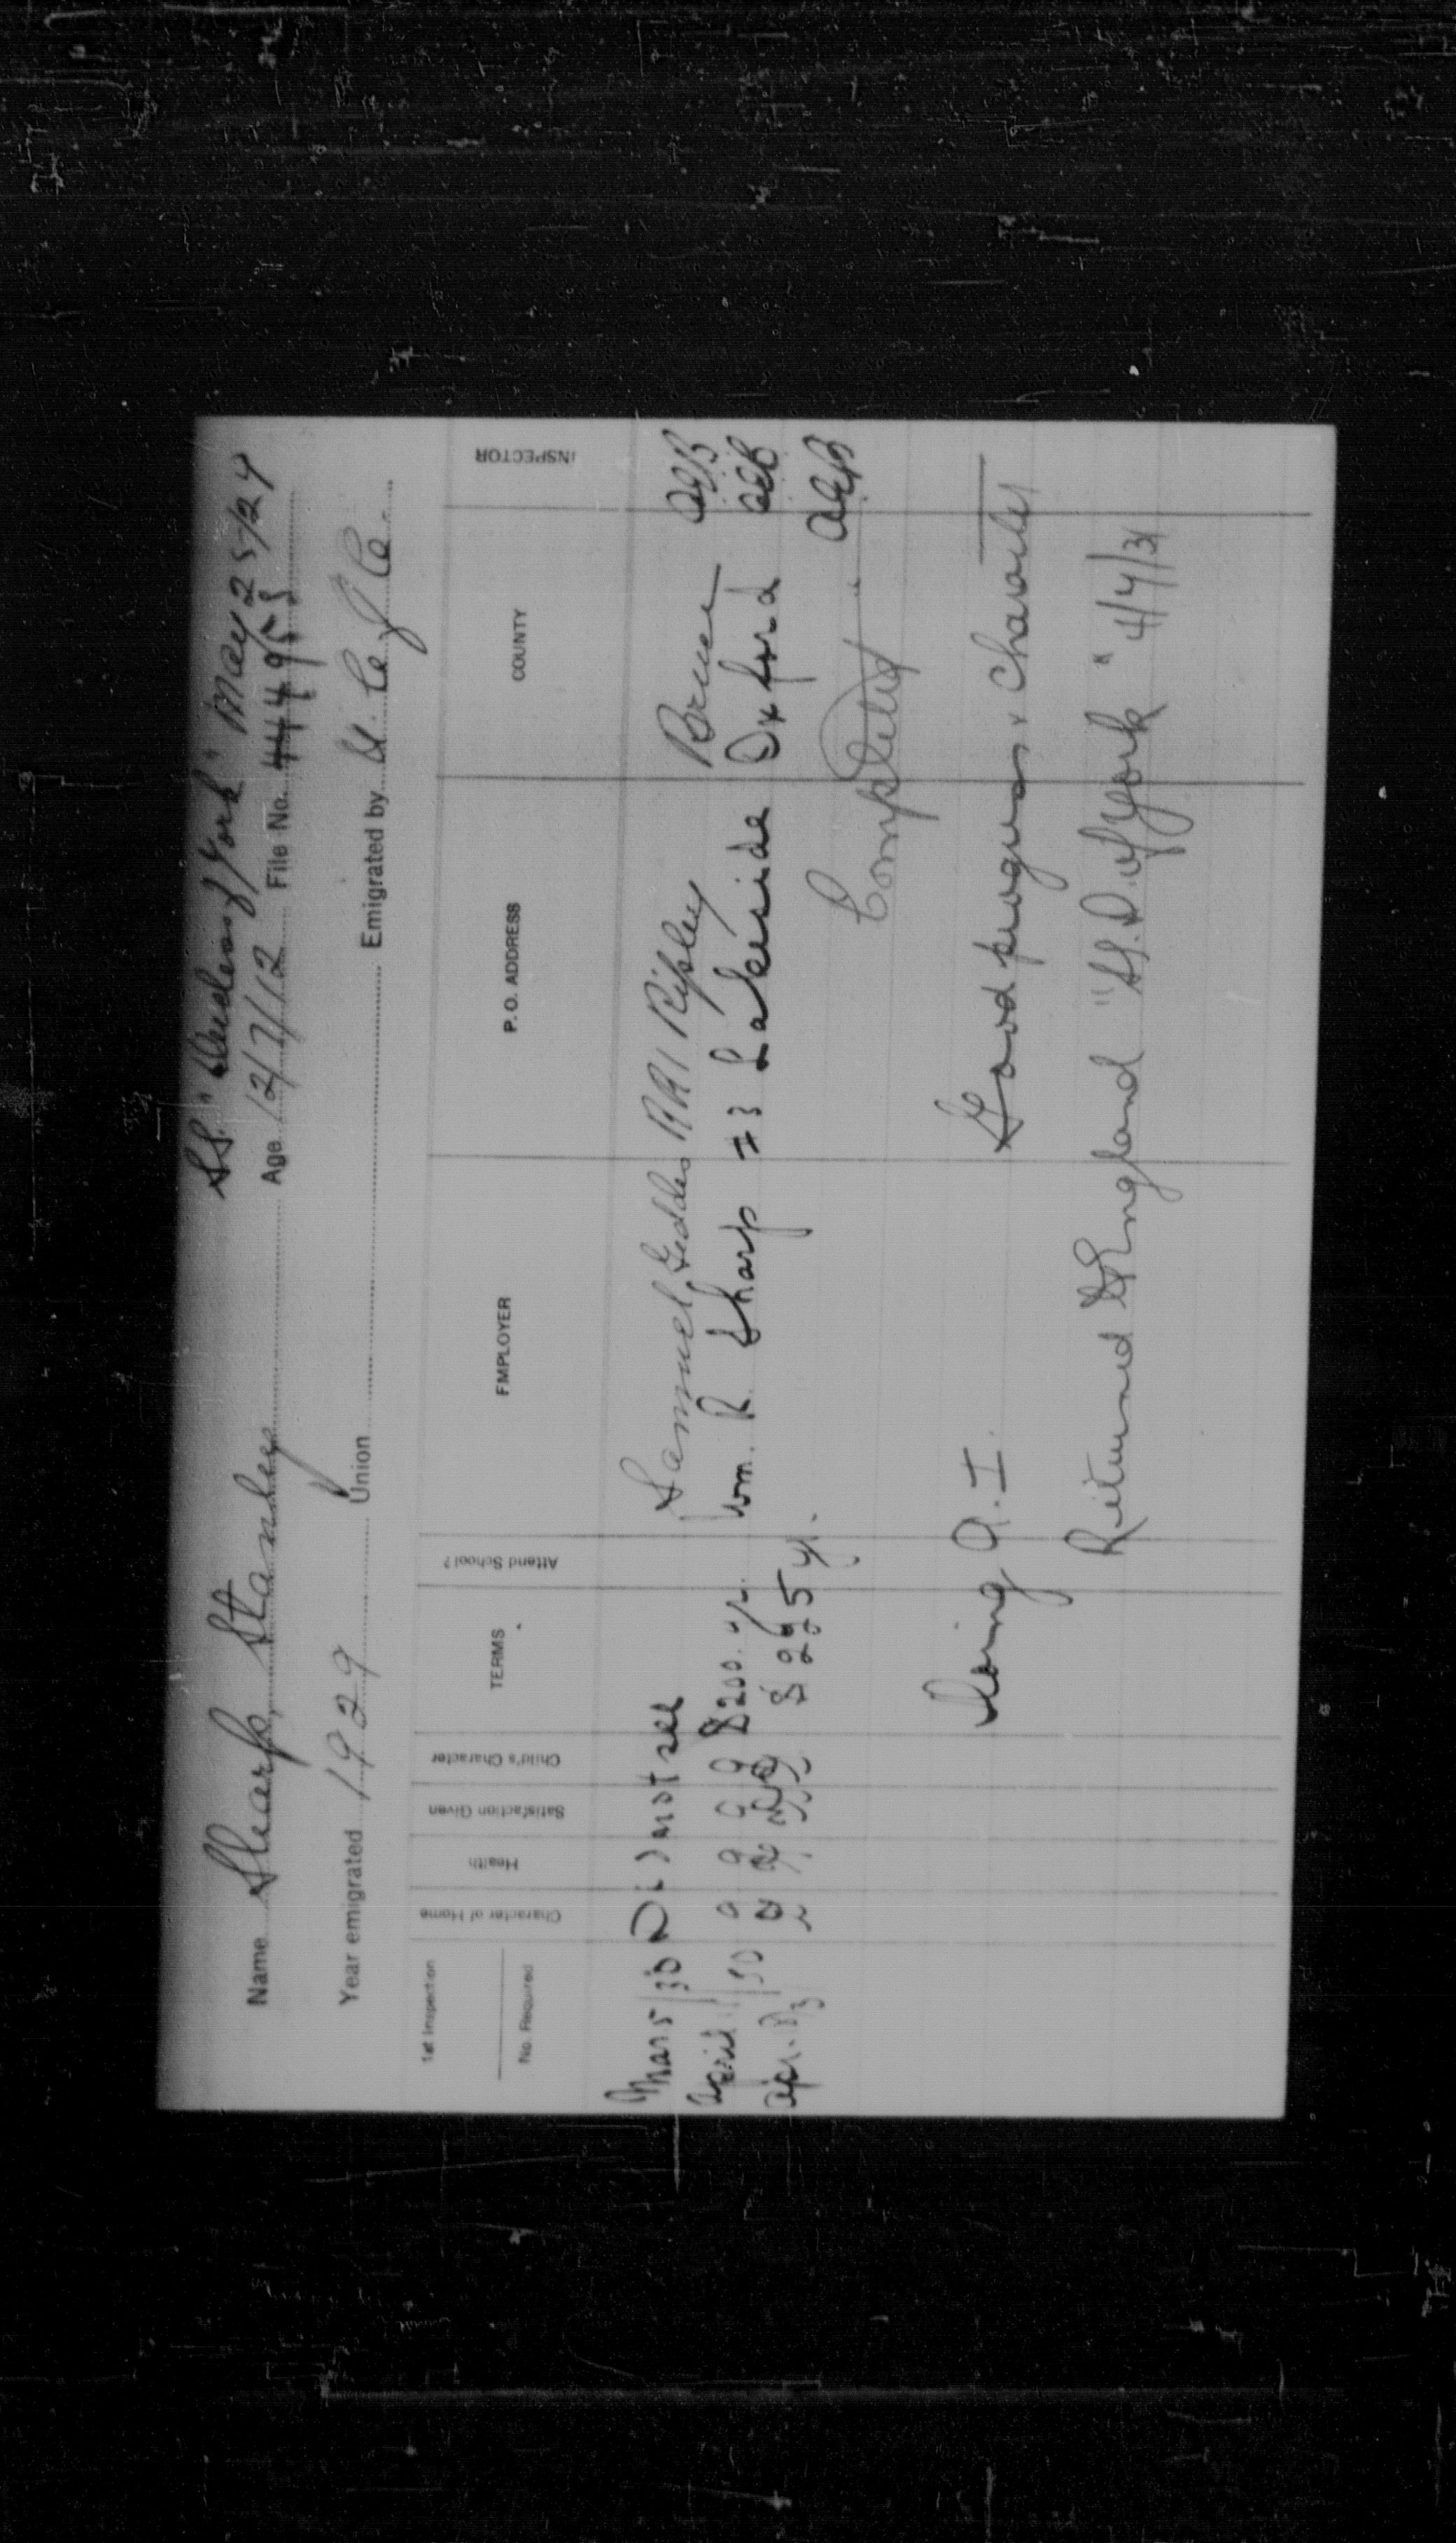 S.S. "Duchess of York" May 25/24
Name Sharp, Stanley Age 12/7/12 File No.
Year emigrated 1929 Union Emigrated by U. Co
1st Inspection
No. Required
Character of Home
Health
Satisfaction Given
Child's Character
TERMS
Attend School?
EMPLOYER
P. O. ADDRESS
COUNTY
INSPECTOR
Mar 5/30 Did not see Samuel Geddes RR1 Ripley Bruce AEB
April 1/30 g g g g $200. yr. Wm. R. Sharp #3 Lakeside Oxford AEB
Apr. yr. AEB
Completed
Doing A.I. Good progress & character
Returned to England "SS. D. of York" 4/4/31